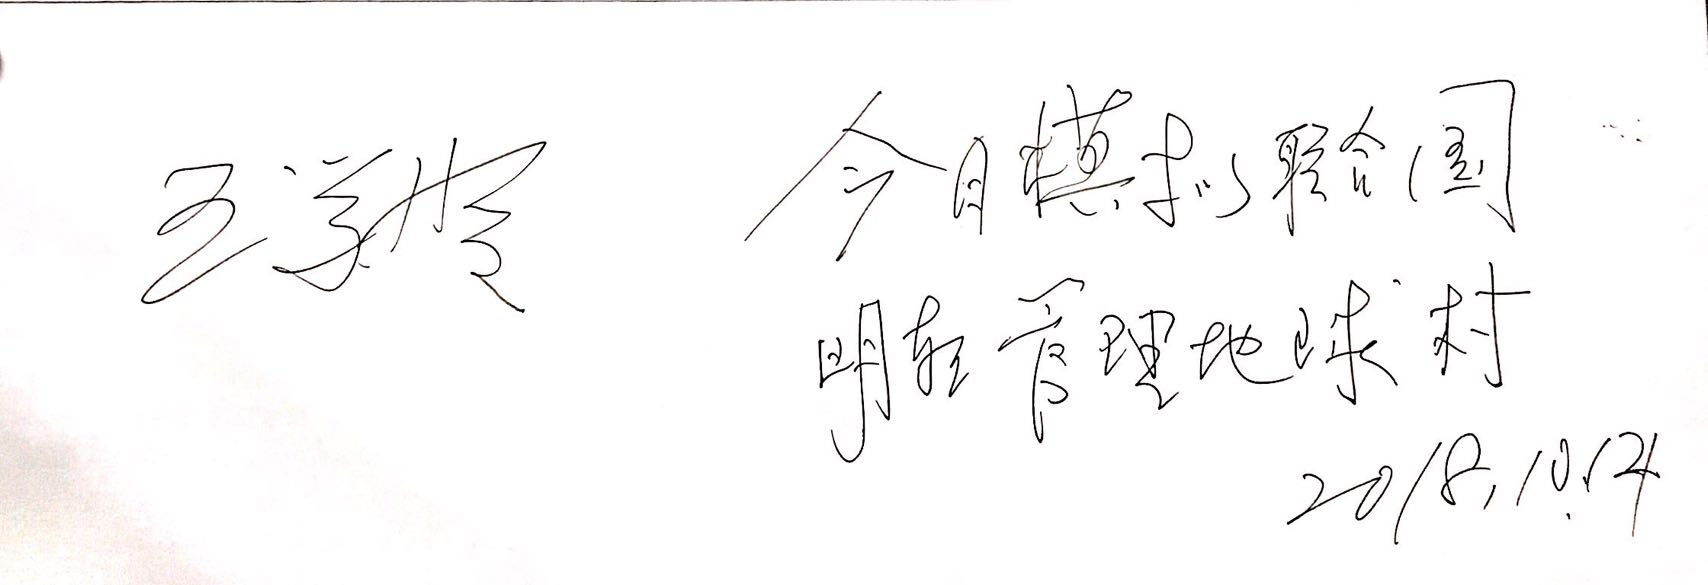 王学贤
今日模拟联合国
明朝管理地球村
2018.10.14